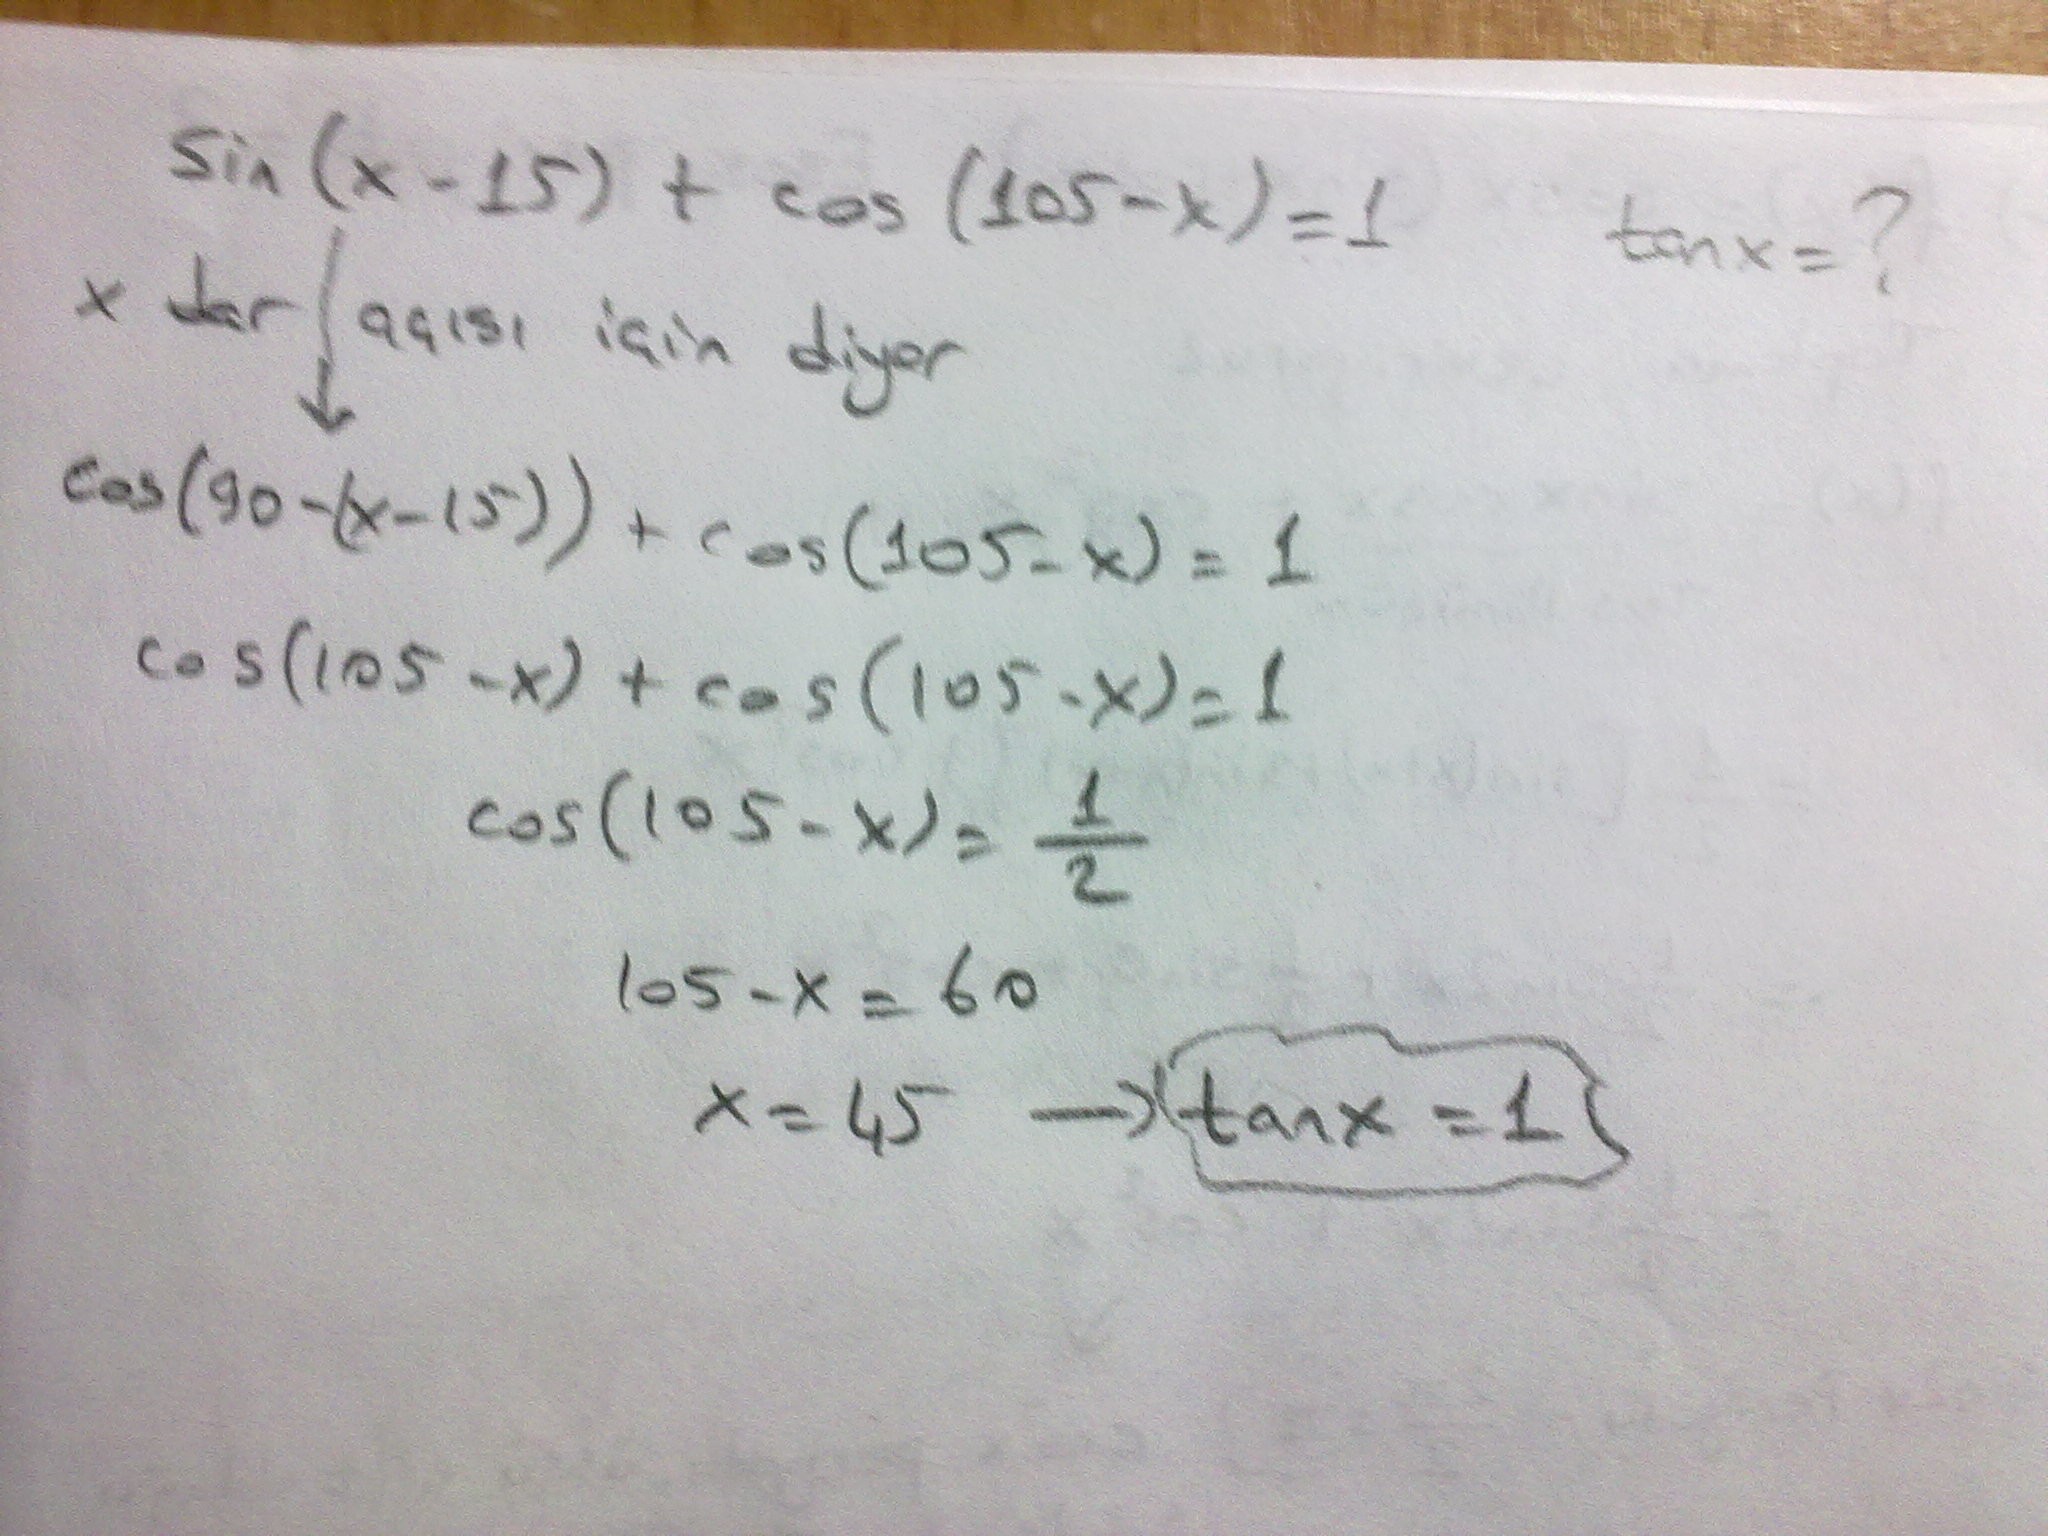 sin(x-15) + cos(105-x)=1 tanx=?
x dar açısı için diyor
cos(90-(x-15)) + cos(105-x)=1
cos(105-x) + cos(105-x)=1
cos(105-x)= 1/2
105-x=60
x=45 → tanx=1